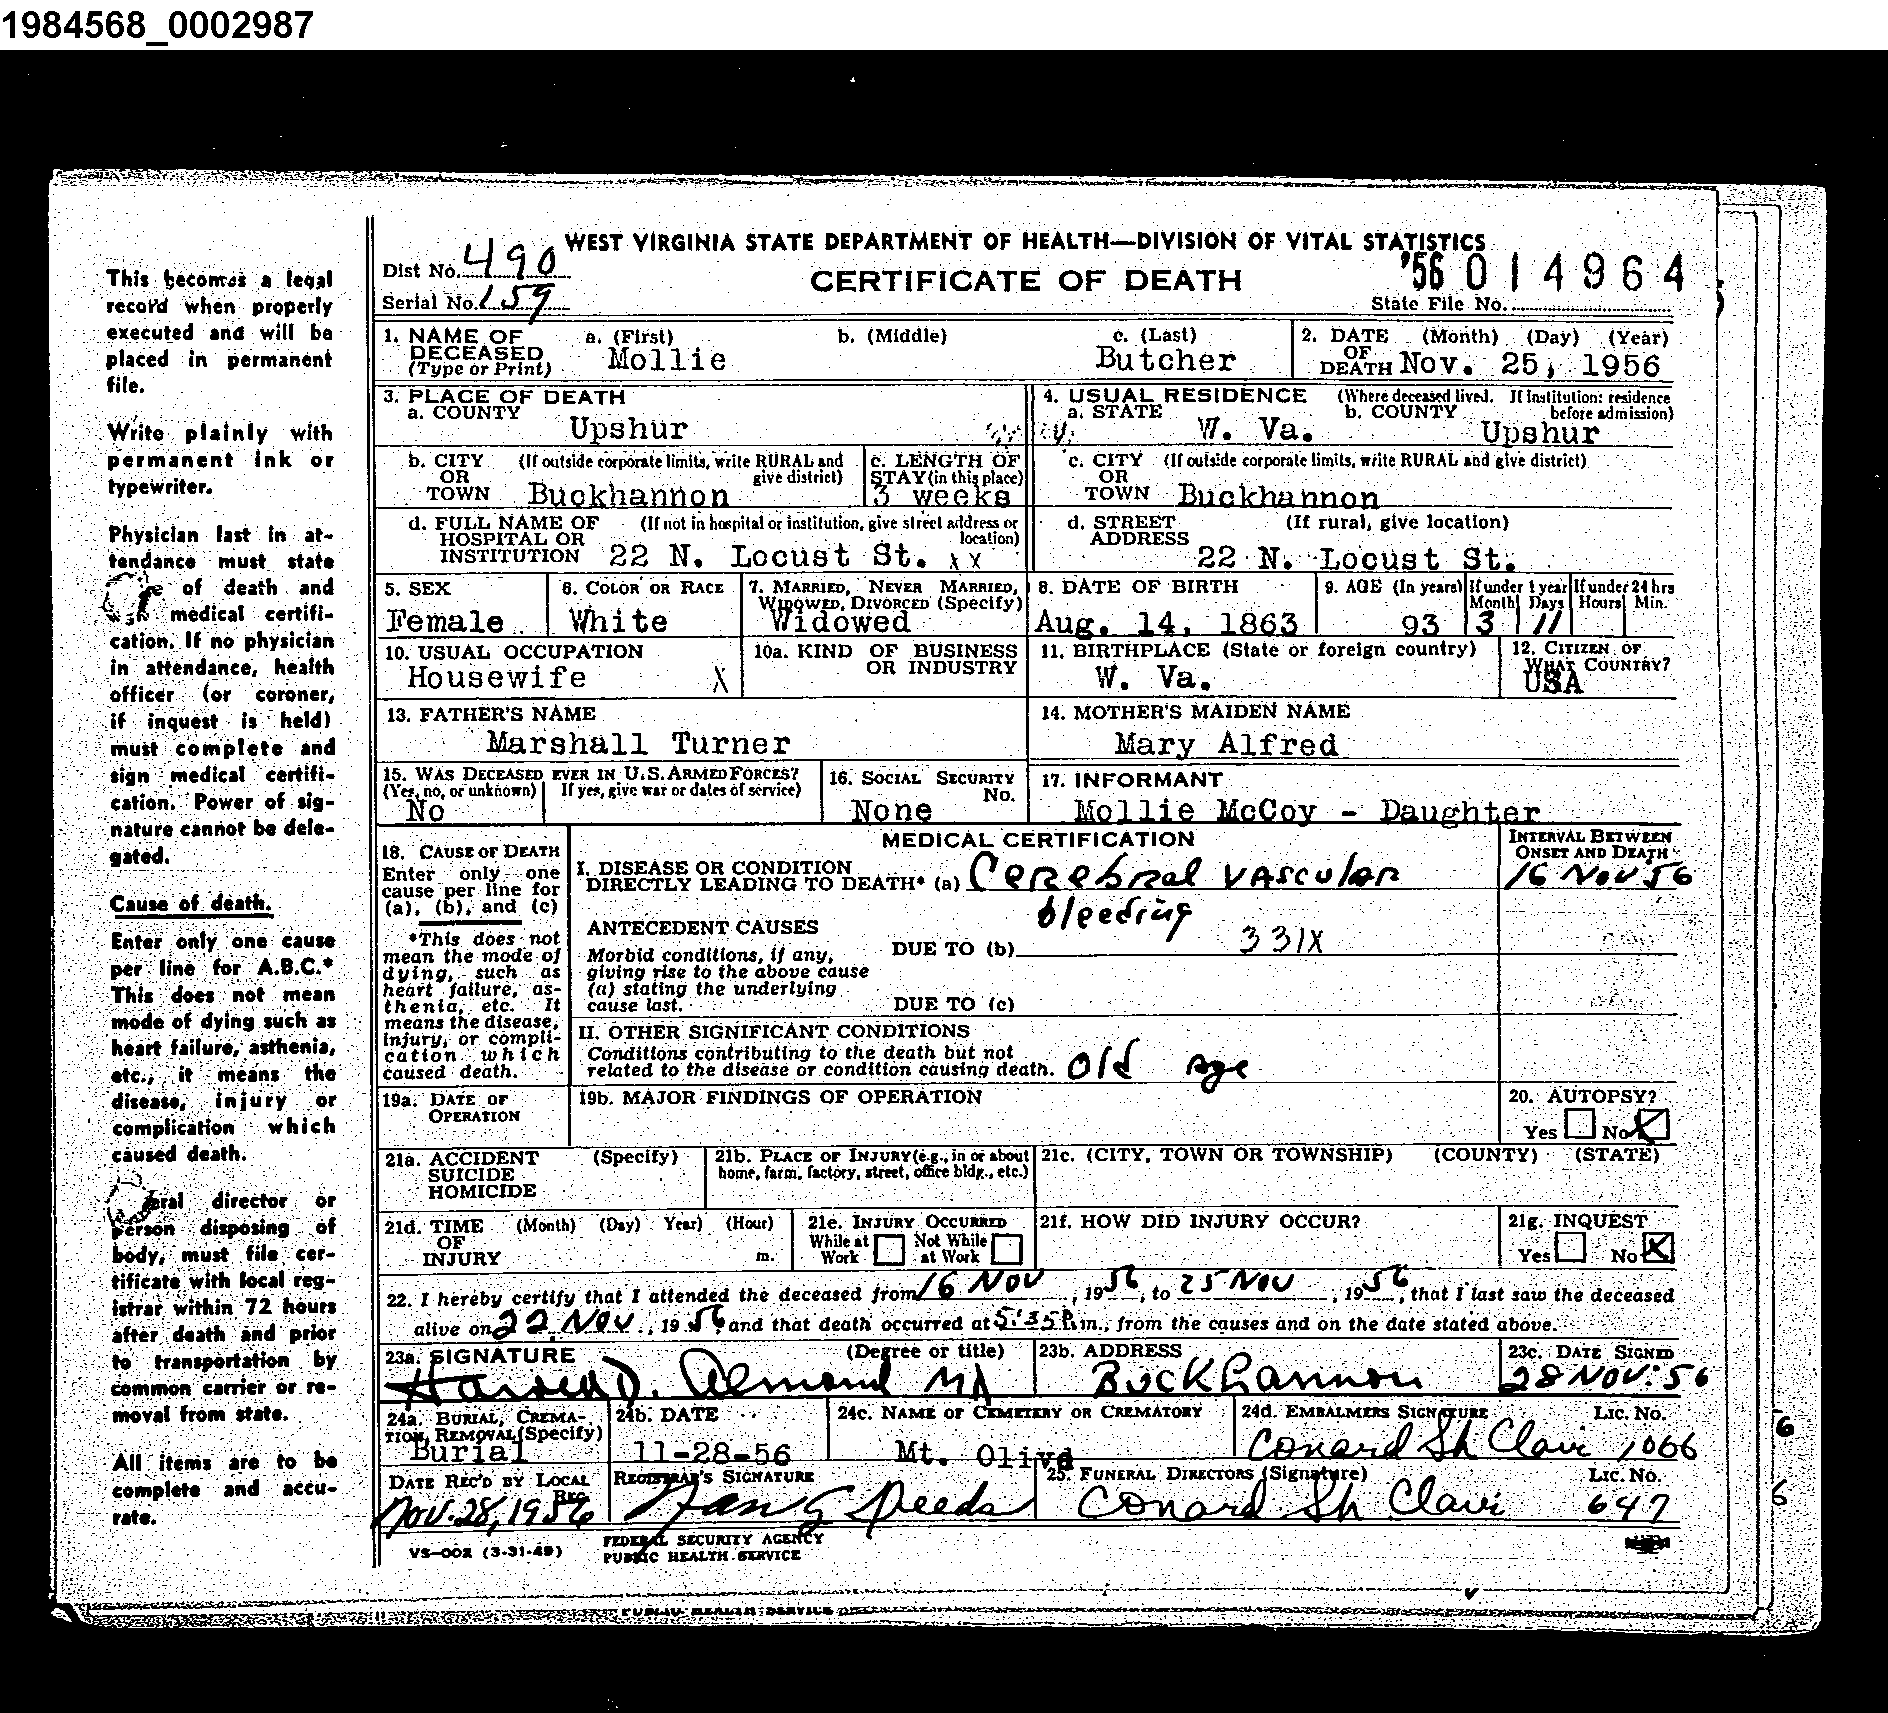 1984568_0002987
This becomes a legal
record when properly
executed and will be
placed in permanent
file.
Write plainly with
permanent ink or
typewriter.
Physician last in at-
tendance must state
of death and
medical certifi-
cation. If no physician
in attendance, health
officer (or coroner,
if inquest is held)
must complete and
sign medical certifi-
cation. Power of sig-
nature cannot be dele-
gated.
Cause of death.
Enter only one cause
per line for A.B.C.*
This does not mean
mode of dying such as
heart failure, asthenia,
etc., it means the
disease, injury or
complication which
caused death.
director or
person disposing of
body, must file cer-
tificate with local reg-
istrar within 72 hours
after death and prior
to transportation by
common carrier or re-
moval from state.
All items are to be
complete and accu-
rate.
WEST VIRGINIA STATE DEPARTMENT OF HEALTH—DIVISION OF VITAL STATISTICS
Dist No. 490
CERTIFICATE OF DEATH
'56 014964
Serial No. 159
State File No.
1. NAME OF DECEASED (Type or Print) a. (First) b. (Middle) c. (Last)
Mollie Butcher
2. DATE OF DEATH (Month) (Day) (Year)
Nov. 25, 1956
3. PLACE OF DEATH
a. COUNTY
Upshur
4. USUAL RESIDENCE (Where deceased lived. If institution: residence before admission)
a. STATE W. Va. b. COUNTY Upshur
b. CITY OR TOWN (If outside corporate limits, write RURAL and give district)
Buckhannon
c. LENGTH OF STAY (in this place)
3 weeks
c. CITY OR TOWN (If outside corporate limits, write RURAL and give district)
Buckhannon
d. FULL NAME OF HOSPITAL OR INSTITUTION (If not in hospital or institution, give street address or location)
22 N. Locust St. xx
d. STREET ADDRESS (If rural, give location)
22 N. Locust St.
5. SEX
Female
6. COLOR OR RACE
White
7. MARRIED, NEVER MARRIED, WIDOWED, DIVORCED (Specify)
Widowed
8. DATE OF BIRTH
Aug. 14, 1863
9. AGE (In years) If under 1 year If under 24 hrs
Month Days Hours Min.
93 3 11
10. USUAL OCCUPATION
Housewife X
10a. KIND OF BUSINESS OR INDUSTRY
11. BIRTHPLACE (State or foreign country)
W. Va.
12. CITIZEN OF WHAT COUNTRY?
USA
13. FATHER'S NAME
Marshall Turner
14. MOTHER'S MAIDEN NAME
Mary Alfred
15. WAS DECEASED EVER IN U.S. ARMED FORCES?
(Yes, no, or unknown) If yes, give war or dates of service)
No
16. SOCIAL SECURITY No.
None
17. INFORMANT
Mollie McCoy - Daughter
18. CAUSE OF DEATH
Enter only one
cause per line for
(a), (b), and (c)
*This does not
mean the mode of
dying, such as
heart failure, as-
thenia, etc. It
means the disease,
injury, or compli-
cation which
caused death.
MEDICAL CERTIFICATION
INTERVAL BETWEEN ONSET AND DEATH
I. DISEASE OR CONDITION
DIRECTLY LEADING TO DEATH* (a) Cerebral vascular
bleeding
16 Nov 56
ANTECEDENT CAUSES
Morbid conditions, if any,
giving rise to the above cause
(a) stating the underlying
cause last.
DUE TO (b) 331X
DUE TO (c)
II. OTHER SIGNIFICANT CONDITIONS
Conditions contributing to the death but not
related to the disease or condition causing death. Old age
19a. DATE OF OPERATION
19b. MAJOR FINDINGS OF OPERATION
20. AUTOPSY?
Yes No X
21a. ACCIDENT SUICIDE HOMICIDE (Specify)
21b. PLACE OF INJURY (e.g., in or about home, farm, factory, street, office bldg., etc.)
21c. (CITY, TOWN OR TOWNSHIP) (COUNTY) (STATE)
21d. TIME OF INJURY (Month) (Day) Year) (Hour) m.
21e. INJURY OCCURRED
While at Work Not While at Work
21f. HOW DID INJURY OCCUR?
21g. INQUEST
Yes No X
22. I hereby certify that I attended the deceased from 16 Nov, 1956, to 25 Nov, 1956, that I last saw the deceased
alive on 22 Nov., 1956 and that death occurred at 5:35 P.m., from the causes and on the date stated above.
23a. SIGNATURE (Degree or title)
Harold D. Almond MD
23b. ADDRESS
Buckhannon
23c. DATE SIGNED
28 Nov. 56
24a. BURIAL, CREMATION, REMOVAL (Specify)
Burial
24b. DATE
11-28-56
24c. NAME OF CEMETERY OR CREMATORY
Mt. Olive
24d. EMBALMERS SIGNATURE Lic. No.
Conard Sh Clair 1066
DATE REC'D BY LOCAL REG.
Nov. 28, 1956
REGISTRAR'S SIGNATURE
25. FUNERAL DIRECTORS (Signature) Lic. No.
Conard Sh Clair 647
VS-002 (3-31-49)
FEDERAL SECURITY AGENCY
PUBLIC HEALTH SERVICE
PUBLIC HEALTH SERVICE